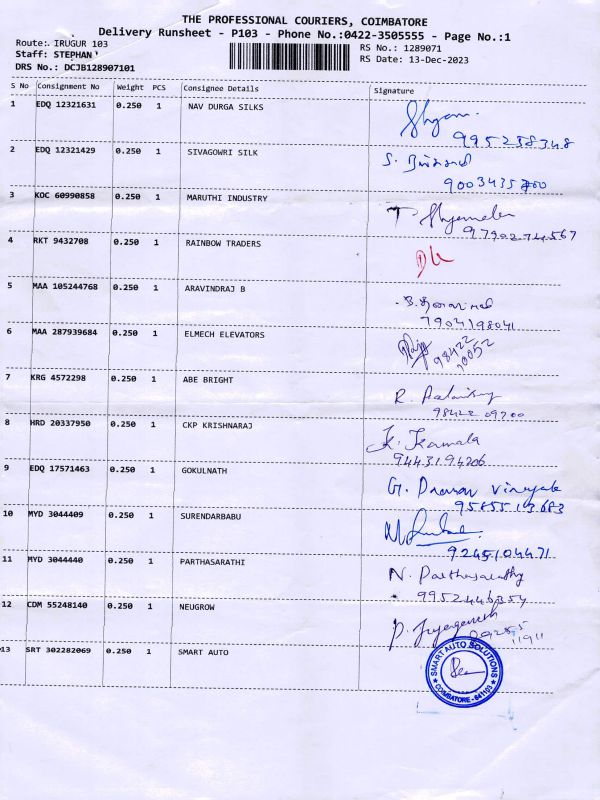 THE PROFESSIONAL COURIERS, COIMBATORE
Delivery Runsheet - P103 - Phone No.:0422-3505555 - Page No.:1
Route: IRUGUR 103
RS No.: 1289071
Staff: STEPHAN
RS Date: 13-Dec-2023
DRS No.: DCJB128907101
S No Consignment No Weight PCS Consignee Details Signature
1 EDQ 12321631 0.250 1 NAV DURGA SILKS
2 EDQ 12321429 0.250 1 SIVAGOWRI SILK S.
9003435700
3 KOC 60990858 0.250 1 MARUTHI INDUSTRY T. Shyamala
9790274567
4 RKT 9432708 0.250 1 RAINBOW TRADERS
5 MAA 105244768 0.250 1 ARAVINDRAJ B
7904198041
6 MAA 287939684 0.250 1 ELMECH ELEVATORS
98422
10052
7 KRG 4572298 0.250 1 ABE BRIGHT R.
98422 09700
8 HRD 20337950 0.250 1 CKP KRISHNARAJ K. Kamala
9443194206
9 EDQ 17571463 0.250 1 GOKULNATH G.
9585513683
10 MYD 3044409 0.250 1 SURENDARBABU
9245104471
11 MYD 3044440 0.250 1 PARTHASARATHI N. Parthasarathy
9952446354
12 CDM 55248140 0.250 1 NEUGROW P.
13 SRT 302282069 0.250 1 SMART AUTO
SMART AUTO SOLUTIONS
COIMBATORE - 641103